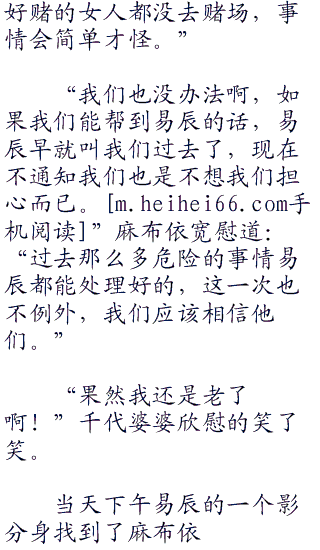 好赌的女人都没去赌场，事
情会简单才怪。”
“我们也没办法啊，如
果我们能帮到易辰的话，易
辰早就叫我们过去了，现在
不通知我们也是不想我们担
心而已。[m.heihei66.com手
机阅读]”麻布依宽慰道：
“过去那么多危险的事情易
辰都能处理好的，这一次也
不例外，我们应该相信他
们。”
“果然我还是老了
啊！”千代婆婆欣慰的笑了
笑。
当天下午易辰的一个影
分身找到了麻布依